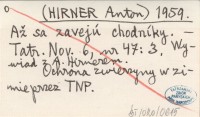 (HIRNER Anton) 1959.
Až sa zavejú chodníky. —
Tatr. Nov. 6, nr 47: 3, Wy-
wiad z A. Hirnerem.
Ochrona zwierzyny w zi-
mie przez TNP.